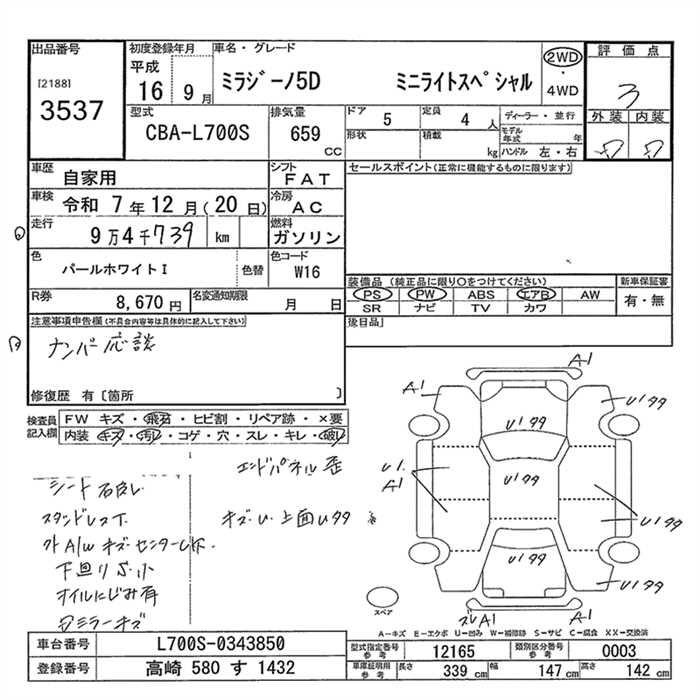 出品番号
[2188]
3537
初度登録年月
平成
16 9月
車名・グレード
ミラジーノ5D ミニライトスペシャル
2WD
・
4WD
評価点
3
外装 内装
型式
CBA-L700S
排気量
659
CC
ドア
5
定員
4 人
形状
積載
kg
ディーラー・並行
モデル年式
年
ハンドル 左・右
車歴
自家用
シフト
FAT
車検
令和 7年12月(20日)
冷房
AC
走行
9万4千739 km
燃料
ガソリン
色
パールホワイトI
色替
色コード
W16
R券
8,670円
名変通知期限
月 日
セールスポイント(正常に機能するものに限ります)
装備品 (純正品に限り○をつけてください)
PS PW ABS エアB AW
SR ナビ TV カワ
新車保証書
有・無
後日品
注意事項申告欄(不具合内容等は具体的に記入して下さい)
ナンバー応談
修復歴 有〔箇所 〕
検査員記入欄
FW キズ・飛石・ヒビ割・リペア跡・×要
内装 キズ・汚レ・コゲ・穴・スレ・キレ・破レ
エンドパネル歪
シート
スタンドレスT
キズU 上面U99
外A/Wキズ
下廻りS小
オイルにじみ有
ミラーキズ
A1
A1
A1
U199
U199
U1.
A1
U199
U199
U199
U199
スレA1
A1
スペア
A-キズ E-エクボ U-凹み W-補修跡 S-サビ C-腐食 XX-交換済
車台番号
L700S-0343850
登録番号
高崎 580 す 1432
型式指定番号
参考
12165
類別区分番号
参考
0003
車庫証明用
参考
長さ
339 cm
幅
147 cm
高さ
142 cm